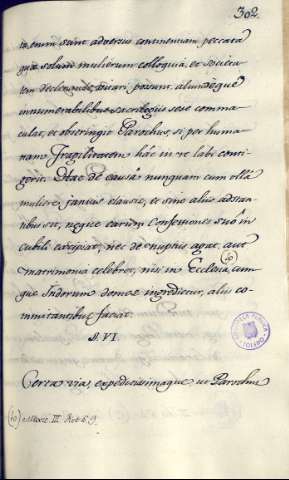 302
in enim sunt adversus continentiam peccata
quæ solum mulierum colloquia, et societa-
tem declinando, vitari possunt, aliundeque
innumerabilibus sacrilegiis sese comma-
culat, et obstringit Parochus, si per huma-
nam fragilitatem hâc in re labi conti-
gerit. Hac de causâ nunquam cum ullâ
muliere, januis clausis, et sine aliis adstan-
tibus sit, neque earum Confessiones suô in
cubili excipiat, nec de nuptiis agat, aut
matrimonia celebret, nisi in Ecclesia, (10) cum-
que Indorum domos ingreditur, aliis co-
mitantibus faciat.
§. VI.
Circa vias, expeditissimaque ut Parochus
(10)